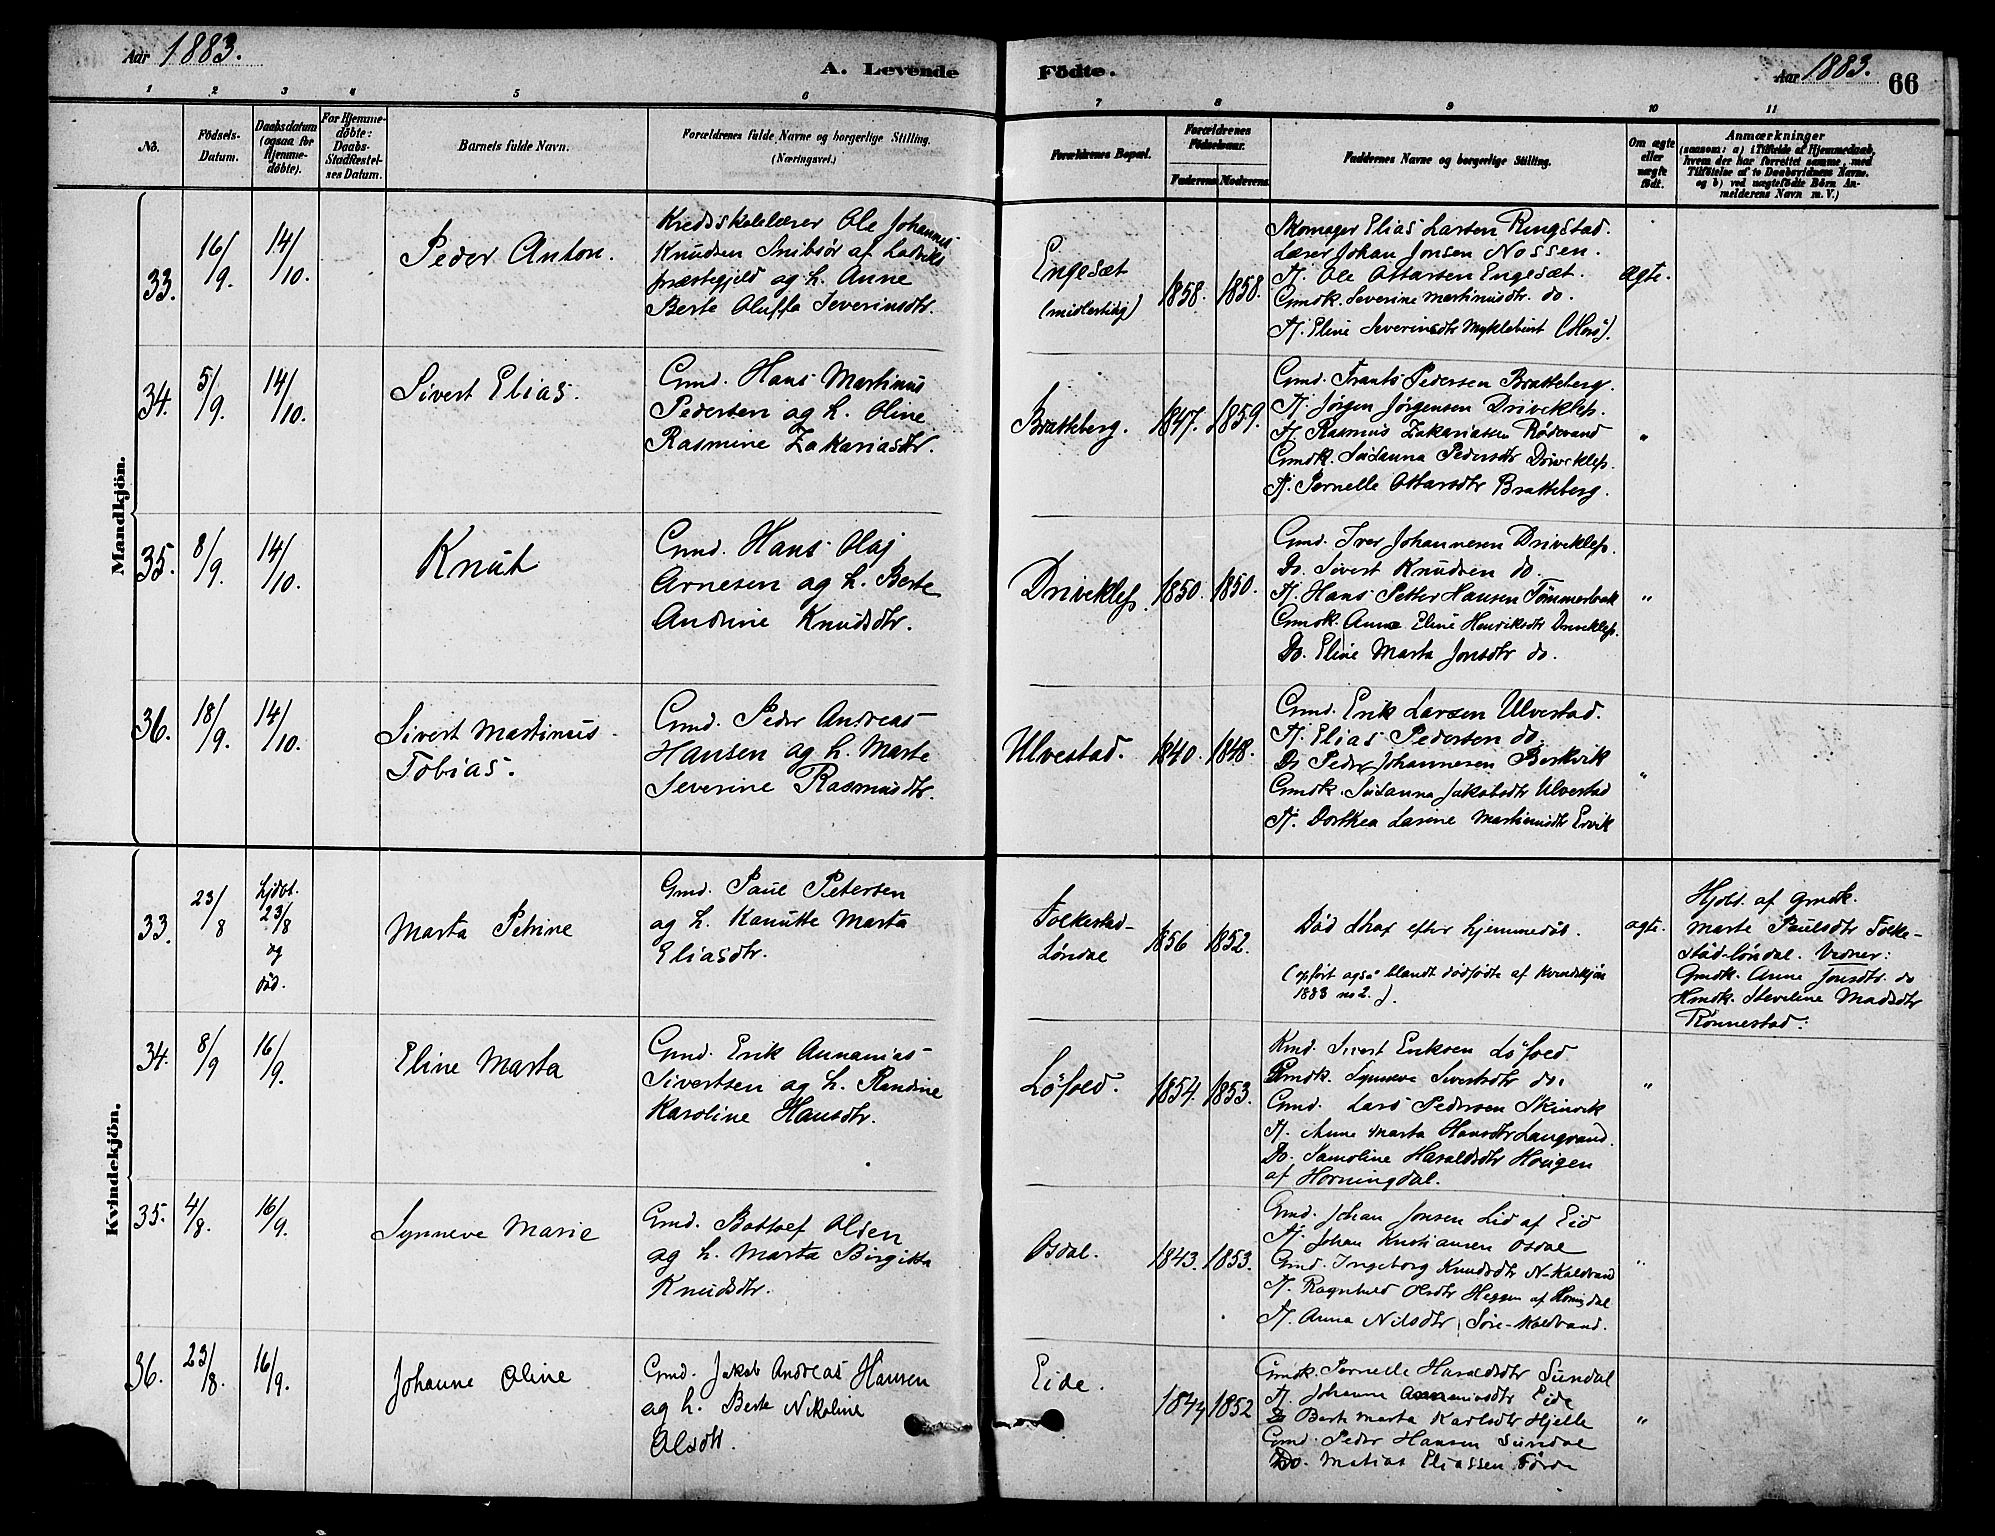 Aar 1883.
A. Levende Födte.
Aar 1883. 66
1 2 3 4 5 6 7 8 9 10 11
No.
Födsels-
Datum.
Daabsdatum
(ogsaa for
Hjemme-
døbte).
For Hjemme-
døbte:
Daabs-
Stadfæstel-
ses Datum.
Barnets fulde Navn.
Forældrenes fulde Navne og borgerlige Stilling.
(Næringsvei.)
Forældrenes Bopæl.
Forældrenes
Födselsaar.
Faderens. Moderens.
Faddernes Navne og borgerlige Stilling.
Om ægte
eller
uægte
født.
Anmærkninger
(saasom: a) i Tilfælde af Hjemmedaab,
hvem der har forrettet samme, med
Tilföielse af to Daabsvidners Navne.
og b) ved uægtefödte Börn An-
melderens Navn m. V.)
Mandkjön.
33. 16/9. 14/10. Peder Anton.
Kredsskolelærer Ole Johannes
Knudsen Snibsør af Ladviks
præstegjeld og h. Anne
Berte Oluffa Severinsdtr.
Engesæt
(midlertidig)
1858. 1858.
Skomager Elias Larsen Ringstad.
Lærer Johan Jonsen Nossen.
Tj. Ole Ottarsen Engesæt.
Gmdk. Severine Martinusdtr. do.
Tj. Eline Severinsdtr Myklebust (Hors).
ægte.
34. 5/9. 14/10. Sivert Elias.
Gmd. Hans Martinus
Pedersen og h. Oline
Rasmine Zakariasdtr.
Bratteberg. 1847. 1859.
Gmd. Frants Pedersen Bratteberg.
Tj. Jörgen Jörgensen Driveklep.
Tj. Rasmus Zakariassen Rødevand
Gmdk. Susanna Pedersdtr Driveklep.
Tj. Pernelle Ottarsdtr Bratteberg.
"
35. 8/9. 14/10. Knut
Gmd. Hans Olaj
Arnesen og h. Berte
Andrine Knudsdtr.
Driveklep. 1850. 1850.
Gmd. Iver Johannesen Driveklep.
Do. Sivert Knudsen do.
Tj. Hans Petter Hansen Tömmerbak
Gmdk. Anne Eline Henriksdtr Driveklep.
Do. Eline Marta Jonsdtr do.
"
36. 18/9. 14/10. Sivert Martinus
Tobias.
Gmd. Peder Andreas
Hansen og h. Marte
Severine Rasmusdtr.
Ulvestad. 1840. 1848.
Gmd. Erik Larsen Ulvestad.
Tj. Elias Pedersen do.
Do Peder Johannesen Berkvik
Gmdk. Susanna Jakobsdtr Ulvestad
Tj. Dorthea Larine Martinusdtr Ervik
"
Kvindekjön.
33. 23/8 hjdøbt.
23/8
og
død.
Marta Petrine
Gmd. Paul Petersen
og h. Kanutte Marta
Eliasdtr.
Folkestad-
Løndal
1856 1852.
Død strax efter hjemmedøb.
(opført også blandt dødfødte af Kvindekjön
1883 no 2.).
ægte.
Hjdbt. af gmdk.
Marte Paulsdtr Folke-
stad-løndal. Vidner:
Gmdk. Anne Jonsdtr. do
Hmdk. Steveline Madsdtr
Rønnestad.
34. 8/9 16/9. Eline Marta
Gmd. Erik Annanias
Sivertsen og h. Randine
Karoline Hansdtr.
Löfoed. 1854. 1853.
Kmd. Sivert Eriksen Löfoed.
Gmdk. Synneve Sivertsdtr do.
Gmd. Lars Pedersen Skinvik
Tj. Anne Marta Hansdtr Langvand.
Do. Samoline Haraldsdtr Hougen
af Horningdal.
"
35. 4/8. 16/9. Synneve Marie
Gmd. Bottolf Olsen
og h. Marta Birgitta
Knudsdtr.
Osdal. 1843. 1853.
Gmd. Johan Jonsen Lid af Eid
Tj. Johan Kristiansen Osdal
Gmd. Ingeborg Knudsdtr N-Kaldvand
Tj. Ragnhild Olsdtr Heggen af Horningdal
Tj. Anna Nilsdtr Söre-Kaldvand.
"
36. 23/8. 16/9. Johanne Oline
Gmd. Jakob Andreas Hansen
og h. Berte Nikoline
Olsdtr.
Eide. 1844 1852
Gmdk. Pernelle Haraldsdtr Sundal
Tj. Johanne Annaniasdtr Eide
Do Berte Marta Karlsdtr Hjelle
Gmd. Peder Hansen Sundal
Do. Matias Eliassen Förde
"